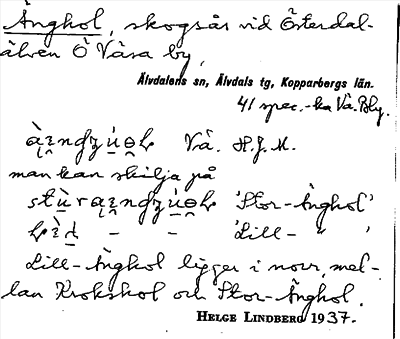 Änghol, skogsås vid Österdal-
älven Ö Våsa by,
Älvdalens sn, Älvdals tg, Kopparbergs län.
41 spec.-ka Vå. Bly.
Vå. H.J.M.
man kan skilja på
'Stor-Änghol'
— — 'Lill- " '
Lill-Änghol ligger i norr, mel-
lan Krokshol och Stor-Änghol.
HELGE LINDBERG 1937.